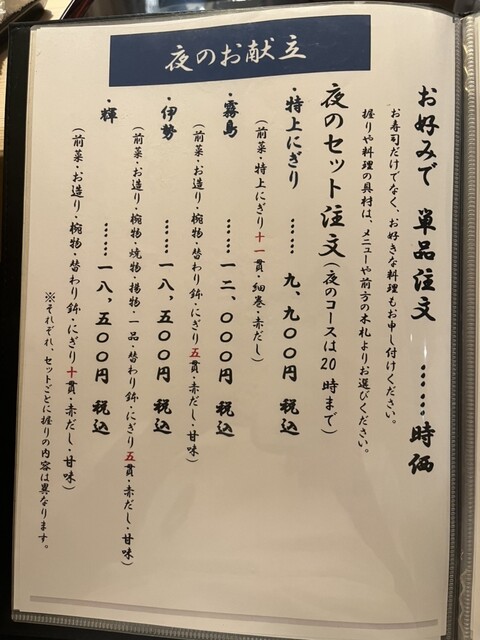 夜のお献立
お好みで 単品注文 ……時価
お寿司だけでなく、お好きな料理もお申し付けください。
握りや料理の具材は、メニューや前方の木札よりお選びください。
夜のセット注文(夜のコースは20時まで)
・特上にぎり …… 九、九〇〇円 税込
(前菜・特上にぎり十一貫・細巻・赤だし)
・霧島 …… 一二、〇〇〇円 税込
(前菜・お造り・椀物・替わり鉢・にぎり五貫・赤だし・甘味)
・伊勢 …… 一八、五〇〇円 税込
(前菜・お造り・椀物・焼物・揚物・一品・替わり鉢・にぎり五貫・赤だし・甘味)
・輝 …… 一八、五〇〇円 税込
(前菜・お造り・椀物・替わり鉢・にぎり十貫・赤だし・甘味)
※それぞれ、セットごとに握りの内容は異なります。